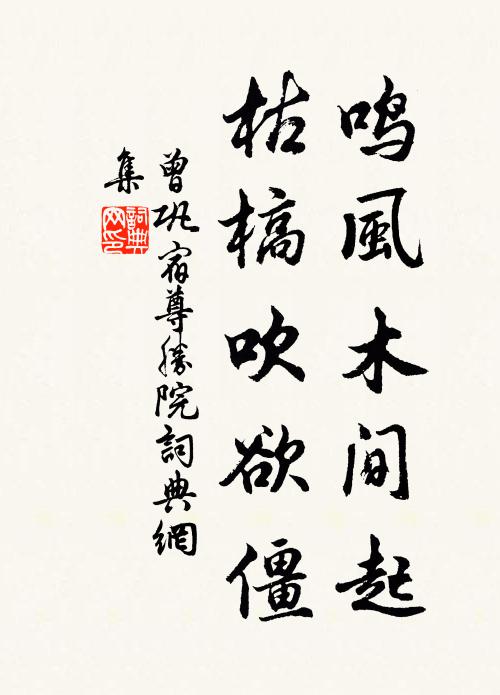 鸣風木间起
枯槁吹欲僵
曾巩宿尊勝院詞典網
集
詞典网印